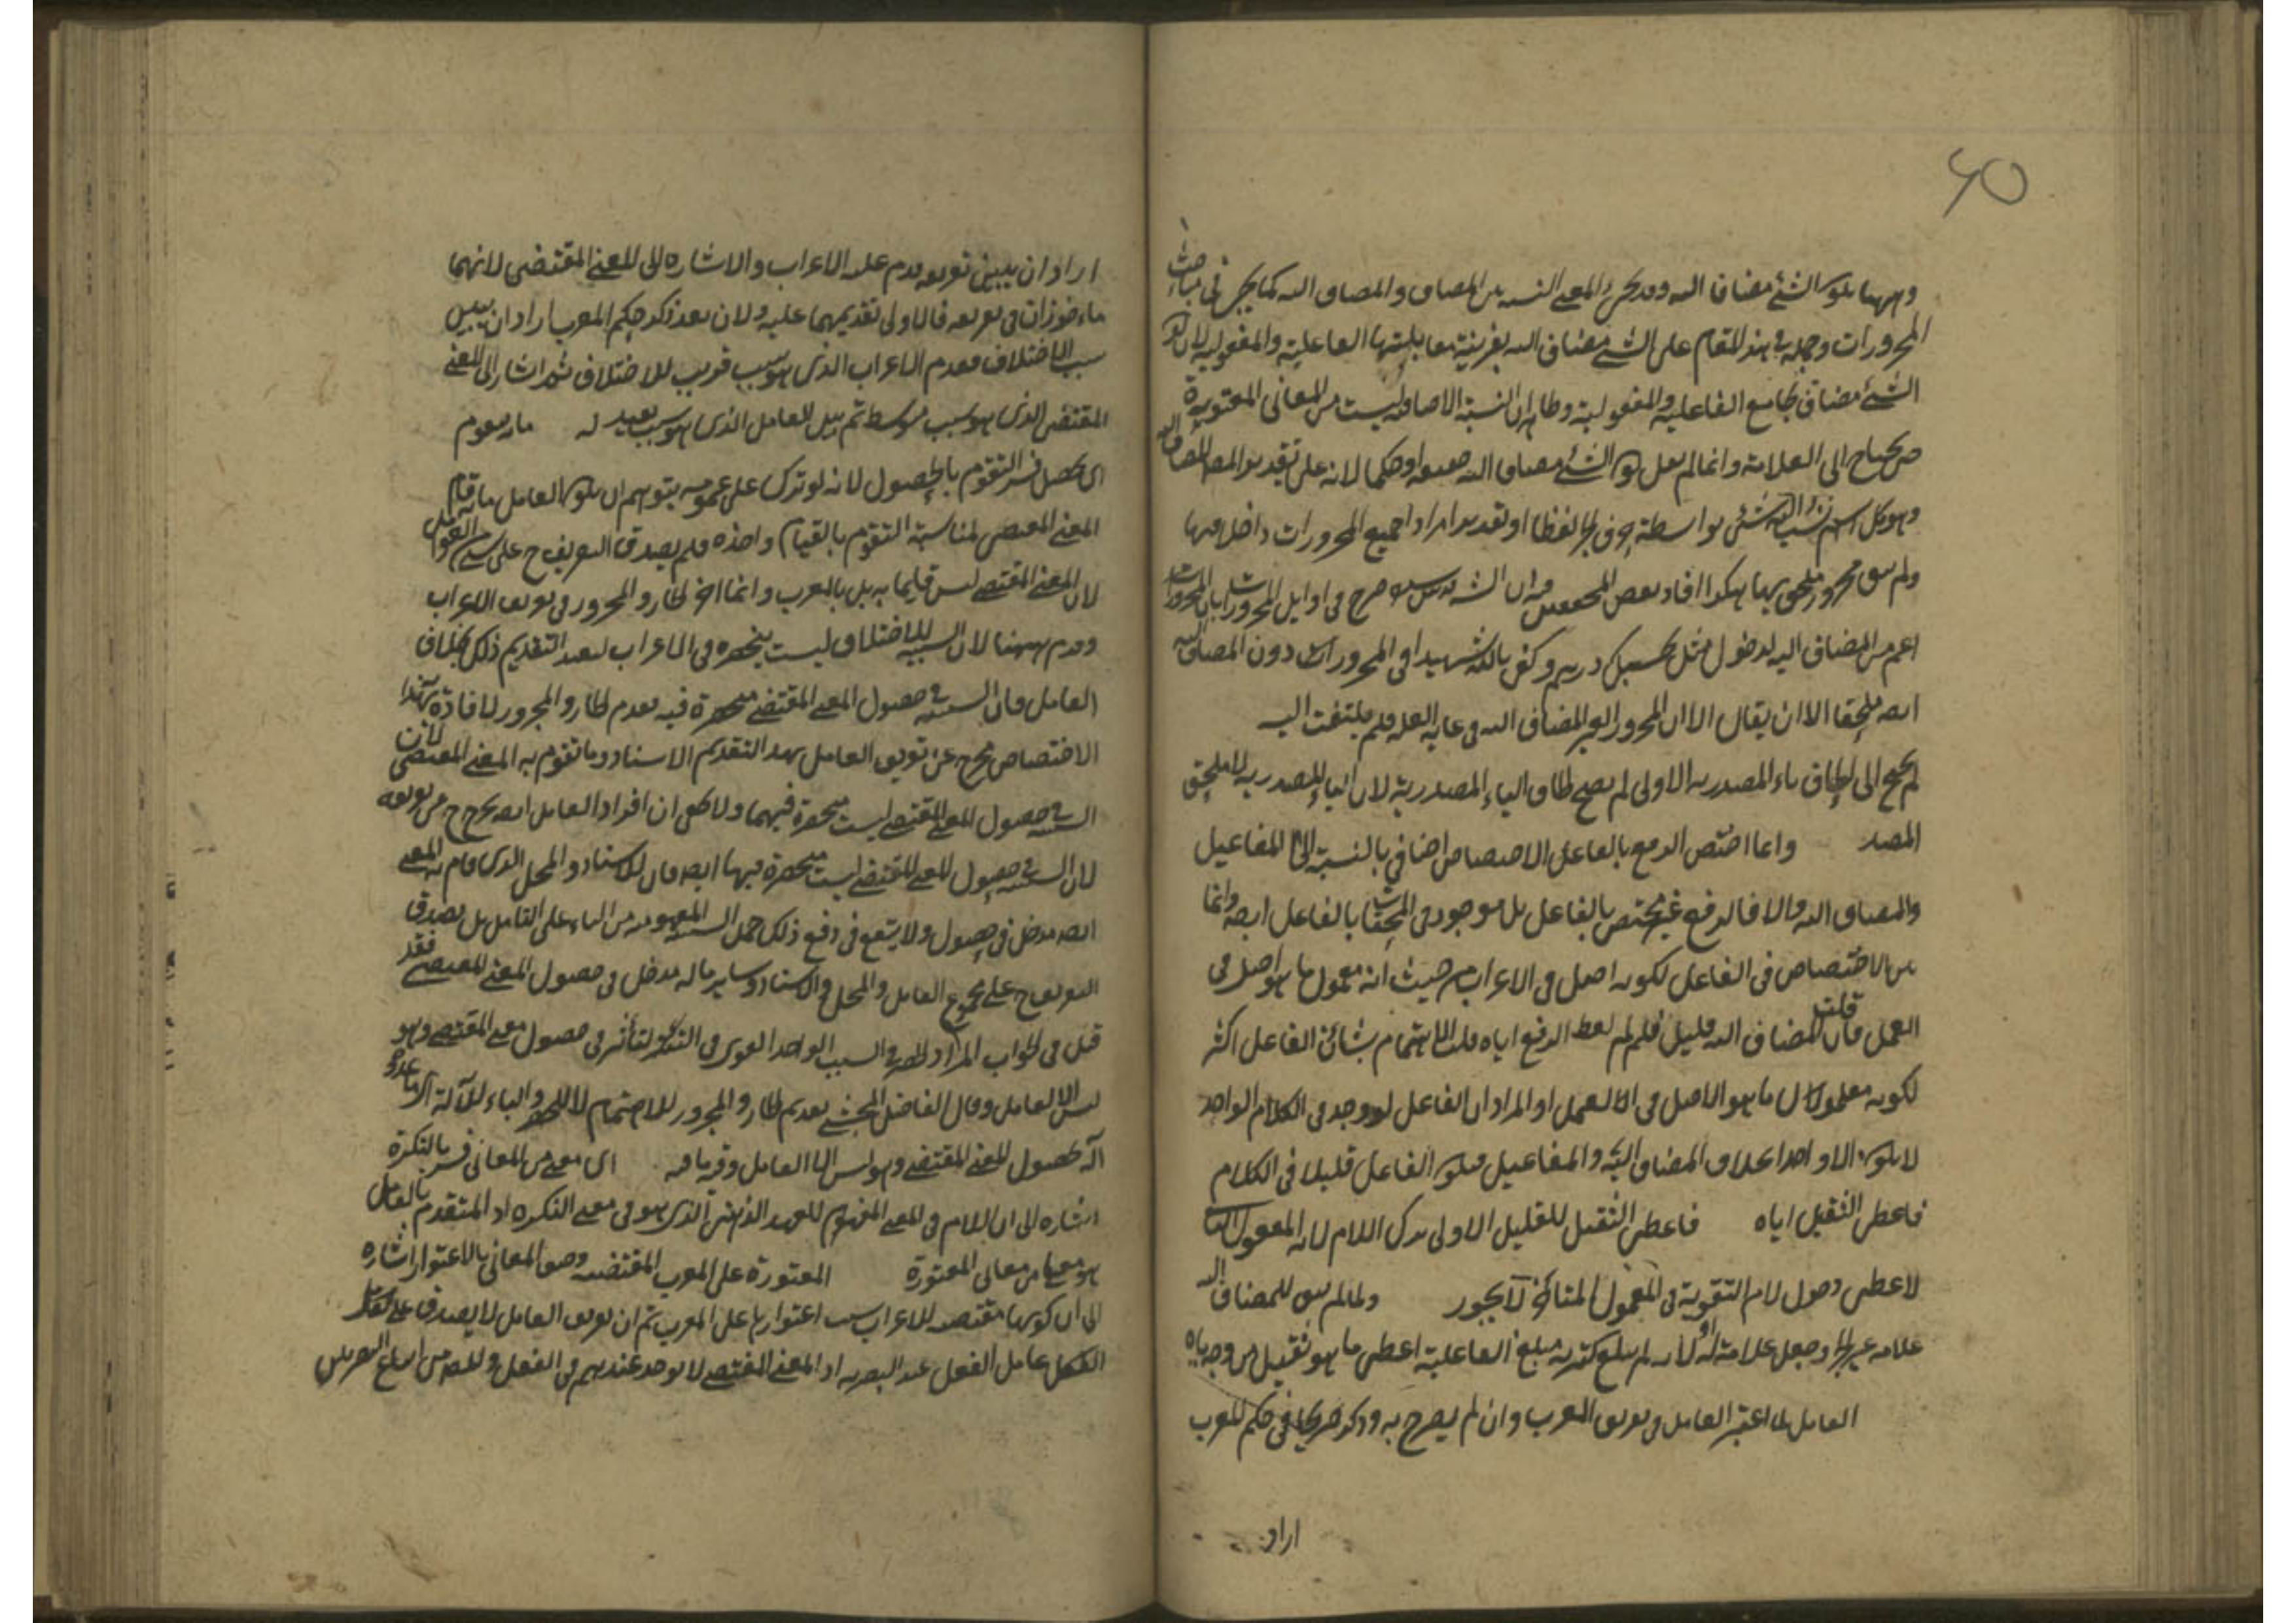 40
وههنا يكون الشئ مضافا اليه وقد يجئ المعنى النسبة بين المضاف والمضاف اليه كما يجئ في مباحث
المجرورات وحمله في هذا المقام على الشئ مضاف اليه بقرينة مقابلتها الفاعلية والمفعولية لان كون
الشئ مضافا يجامع الفاعلية والمفعولية وظاهر ان النسبة الاضافية ليست من المعاني المعتورة
حتى يحتاج الى العلامة وانما لم يقل كون الشئ مضافا اليه حقيقة او حكما لانه على تقدير المضاف اليه
وهو كل اسم نسب اليه شئ بواسطة حرف الجر لفظا او تقديرا مرادا جميع المجرورات داخل فيها
ولم يبق مجرور ملحق بها هكذا افاد بعض المحققين وفيه ان الش صرح في اوايل المجرورات بان المجرورات
اعم من المضاف اليه لدخول مثل بحسبك درهم وكفى بالله شهيدا في المجرورات دون المضاف اليه
ايضه ملحقا الا ان يقال ان المجرور الغير المضاف اليه في غاية القلة فلم يلتفت اليه
لم يحتج الى الحاق ياء المصدرية الاولى لم يصح الحاق الياء المصدرية لان الياء المصدرية لا يلحق
المصدر وانما اختص الرفع بالفاعل الاختصاص اضافي بالنسبة الى المفاعيل
والمضاف اليه والا فالرفع غير مختص بالفاعل بل موجود في الملحقات بالفاعل ايضه وانما
بين الاختصاص في الفاعل لكونه اصل في الاعراب من حيث انه معمول ما هو اصل في
العمل فان قلت المضاف اليه قليل فلم لم يعط الرفع اياه قلت الاهتمام بشان الفاعل اكثر
لكونه معمولا لما هو الاصل في العمل او المراد ان الفاعل لو وجد في الكلام الواحد
لا يكون الا واحدا بخلاف المضاف اليه والمفاعيل فيكون الفاعل قليلا في الكلام
فاعطى الثقيل اياه فاعطى الثقيل للقليل الاولى ترك اللام لانه المفعول الثاني
لاعطى ودخول لام التقوية في المعمول المتاخر لا يجوز ولما لم يبق للمضاف اليه
علامة غير الجر وجعل علامة له او لانه لم يبلغ كثرته مبلغ الفاعلية اعطى ما هو ثقيل من وجه اياه
العامل لما اعتبر العامل في تعريف المعرب وان لم يصرح به وذكر صريحا في حكم المعرب
اراد
اراد ان يبين تعريفه وقدم عليه الاعراب والاشارة الى المعنى المقتضى لانهما
ماخوذان في تعريفه فالاولى تقديمهما عليه ولان بعد ذكر حكم المعرب اراد ان يبين
سبب الاختلاف فقدم الاعراب الذى هو سبب قريب للاختلاف ثم اشار الى المعنى
المقتضى الذى هو سبب متوسط ثم بين العامل الذى هو سبب بعيد له ما به يتقوم
اى يحصل فسر التقوم بالحصول لانه لو ترك على عمومه يتوهم ان يكون العامل ما به قام
المعنى المقتضى لمناسبة التقوم بالقيام واخذه فلم يصدق التعريف ح على شئ من العوامل
لان المعنى المقتضى ليس قايما به بل بالمعرب وانما اخر الجار والمجرور في تعريف الاعراب
وقدم ههنا لان السببية للاختلاف ليست منحصرة في الاعراب ليفيد التقديم ذلك بخلاف
العامل فان السببية في حصول المعنى المقتضى منحصرة فيه فقدم الجار والمجرور لافادة هذا
الاختصاص فخرج عن تعريف العامل بهذا التقديم الاسناد وما تقوم به المعنى المقتضى لان
السببية في حصول المعنى المقتضى ليست منحصرة فيهما ولا يخفى ان افراد العامل ايضه يخرج ح من تعريفه
لان السببية في حصول المعنى المقتضى ليست منحصرة فيها ايضه فان للاسناد والمحل الذى قام به المعنى
ايضه مدخل في حصول ولا ينفع في دفع ذلك حمل السببية المفهومة من الباء على الكامل بل يصدق
التعريف ح على مجموع العامل والمحل والاسناد وساير ما له مدخل في حصول المعنى المقتضى فقد
قيل في الجواب المراد الحصر في السبب الواحد القوى في التاثير في حصول معنى المقتضى وهو
ليس الا العامل وقال الفاضل المحشى تقديم الجار والمجرور للاهتمام لا للحصر والباء للآلة اى ما عدوه
آلة لحصول المعنى المقتضى وهو ليس الا العامل وفيه ما فيه اى معنى من المعاني فسر بالنكرة
اشارة الى ان اللام في المعنى المفهوم للعهد الذهنى الذى هو في معنى النكرة اذ المتقدم بالعامل
هو معنى ما من معانى المعتورة المعتورة على المعرب المقتضية وصف المعاني بالاعتوار اشارة
الى ان كونها مقتضية للاعراب بسبب اعتوارها على المعرب ثم ان تعريف العامل لا يصدق على العامل
عامل الفعل عند البصرية اذ المعنى المقتضى لا يوجد عندهم في الفعل وليس من اتباع البصريين